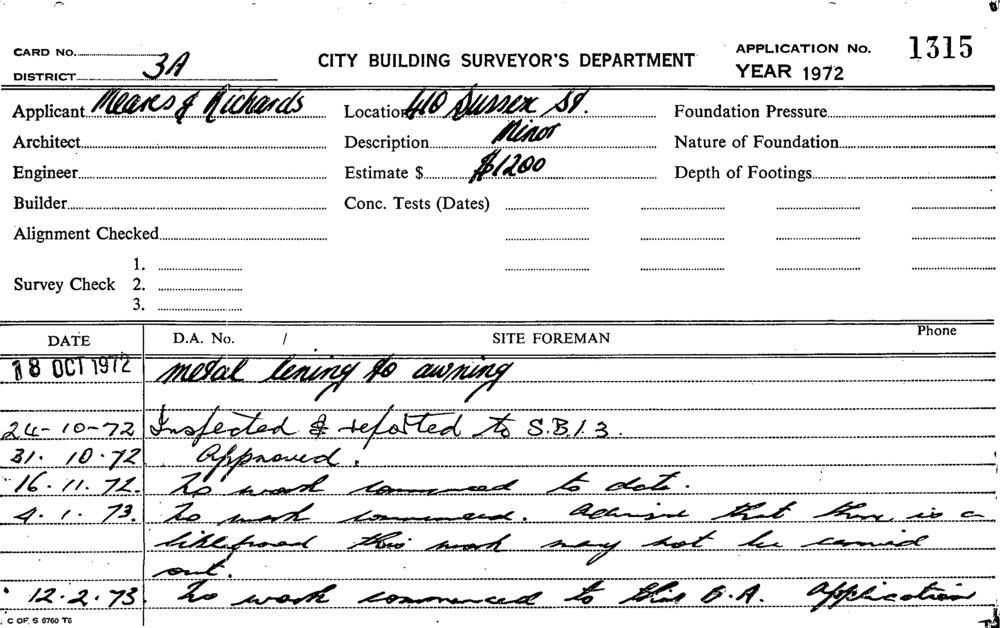 CARD No.
DISTRICT 3A
CITY BUILDING SURVEYOR'S DEPARTMENT
APPLICATION No. 1315
YEAR 1972
Applicant Meares & Richards Location 410 Sussex St. Foundation Pressure
Architect Description Minor Nature of Foundation
Engineer Estimate $ $1200 Depth of Footings
Builder Conc. Tests (Dates)
Alignment Checked
1.
Survey Check 2.
3.
DATE D.A. No. / SITE FOREMAN Phone
18 OCT 1972 metal lening to awning
24-10-72 Inspected & reported to S.B.I.3.
31.10.72 Approved.
16.11.72. No work commenced to date.
4.1.73. No work commenced. Advise that there is a
likelihood this work may not be carried
out.
12.2.73. No work commenced to this B.A. Application
C OF S 8760 T6